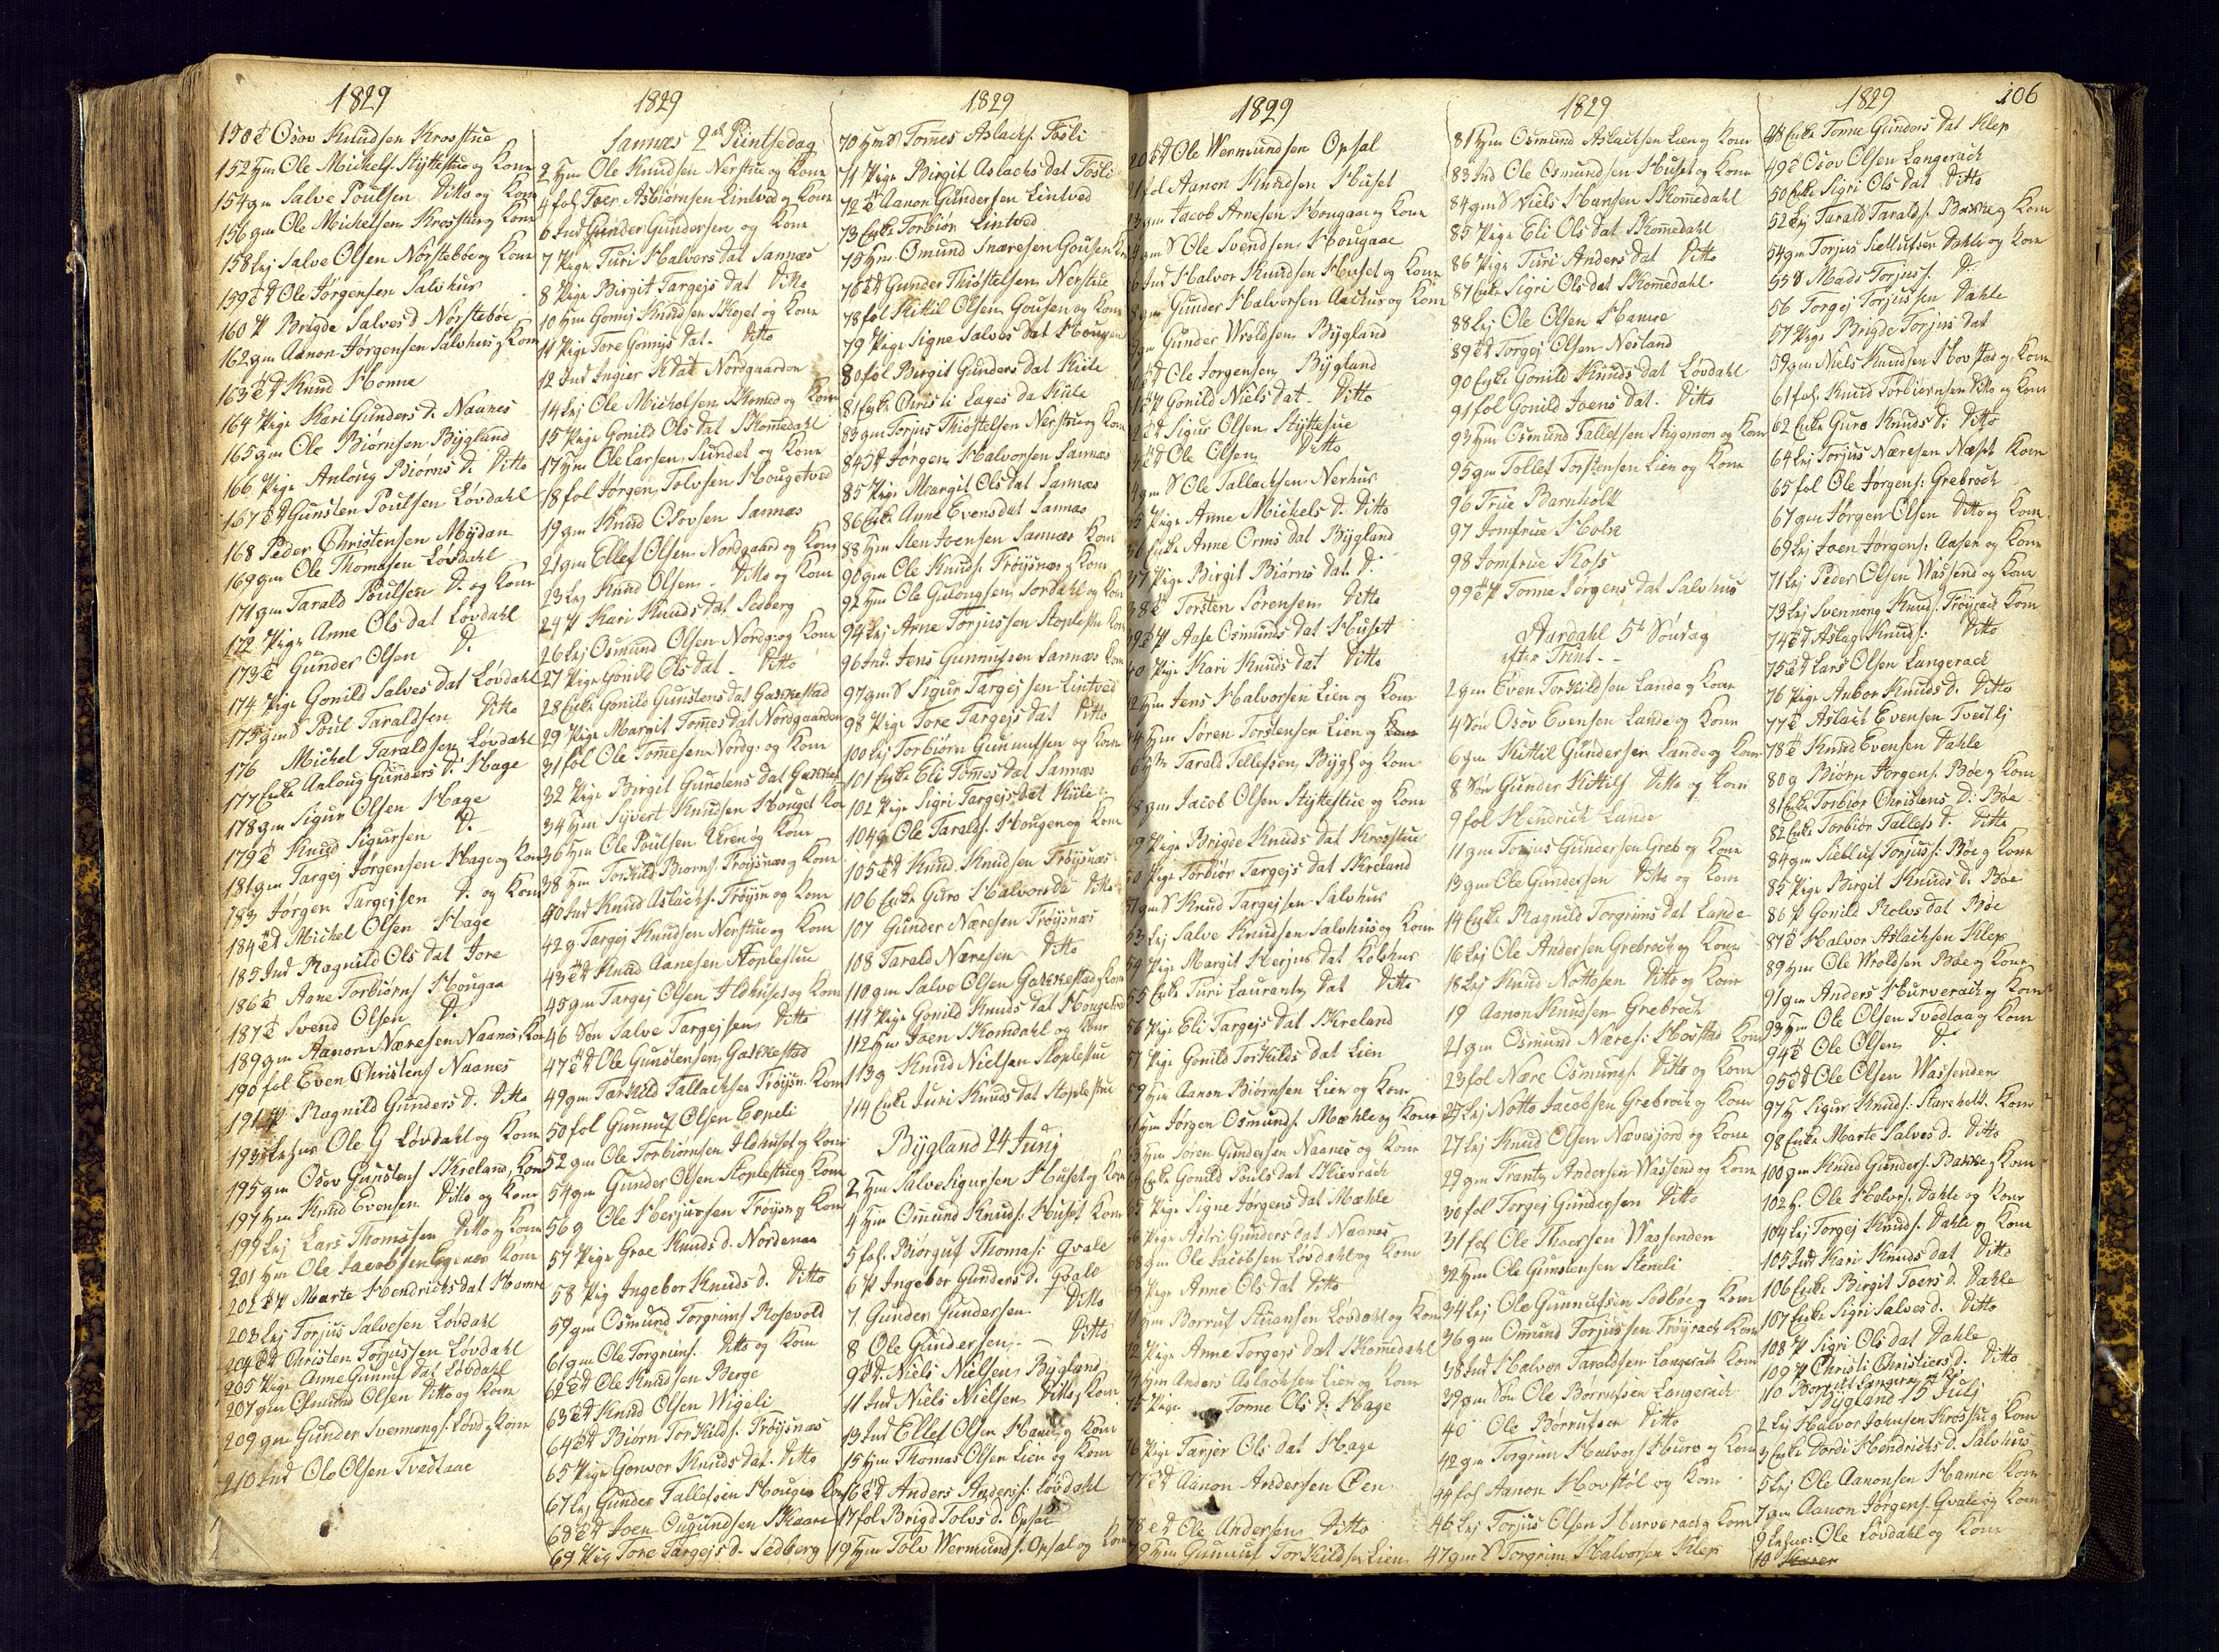 1829
150 et Osov Knudsen Krosstue
152 Hm Ole Michels. Stÿttestue og Kone
154 gm Salve Poulsen Ditto og Kone
156 gm Ole Michelsen Krosstue og Kone
158 Lej Salve Olsen Nørstebøe og Kone
159 et d Ole Jørgensen Salvhus
160 P Brigde Salves d Nørstebøe
162 gm Aanon Jørgensen Salvhus og Kone
163 et d Knud Homme
164 Pige Kari Gunders d. Naanes
165 gm Ole Biørnsen Bÿgland
166 Pige Anloug Biørns d. Ditto
167 et d Gunsten Poulsen Løvdahl
168 Peder Christensen Mÿdan
169 gm Ole Thomasen Løvdahl
171 gm Tarald Poulsen D. og Kone
172 Pige Anne Ols dat Løvdahl
173 et Gunder Olsen D.
174 Pige Gonild Salves dat Løvdahl
175 gm S Poul Taraldsen Ditto
176 Michel Taraldsen Løvdahl
177 Enke Anloug Gunders d. Hage
178 gm Sigur Olsen Hage
179 et Knud Sigursen D.
181 gm Targej Jørgensen Hage og Kone
183 Jørgen Targejsen D. og Kone
184 et d Michel Olsen Hage
185 Ind Ragnild Ols dat Jore
186 et Aane Torbiørns Hougaa
187 et Svend Olsen D.
189 gm Aanon Næresen Naanes, Kone
190 fol Even Christens Naanes
191 et P Ragnild Gunders d. Ditto
193 Ole G Løvdahl og Kone
195 gm Osov Gunstens Skreland, Kone
197 Hm Knud Evensen Ditto og Kone
199 Lej Lars Thomasen Ditto og Kone
201 Hm Ole Jacobsen Kone
202 et P Marte Hendrichs dat Hamre
203 Lej Torjus Salvesen Løvdahl
204 et d Christen Torjussen Løvdahl
205 Pige Anne Gunnuf dat Løvdahl
207 gm Osmund Olsen Ditto og Kone
209 gm Gunder Svennongs. Løvd. og Kone
210 Ind Ole Olsen Tvedtaae
1829
Sannæs 2den Pintsedag
2 Hm Ole Knudsen Nerstue og Kone
4 fol Toer Asbiørnsen Lintved og Kone
6 Ind Gunder Gundersen og Kone
7 Pige Turi Halvors dat Sannæs
8 Pige Birgit Targejs dat Ditto
10 Hm Gonnj Knudsen Skojet og Kone
11 Pige Tore Gonnjs dat. Ditto
12 Ind Ingier K dat Nordgaarden
14 Lej Ole Michelsen Skomed og Kone
15 Pige Gonild Ols dat Skomedahl
17 Hm Ole Larsen Sundet og Kone
18 fol Jørgen Tolvsen Hougetved
19 gm Knud Osovsen Sannæs
21 gm Ellef Olsen Nordgaard og Kone
23 Lej Knud Olsen - Ditto og Kone
24 P Kari Knuds dat Sedberg
26 Lej Osmund Olsen Nordg: og Kone
27 Pige Gonild Ols dat - Ditto
28 Enke Gonild Gunstens dat Gakkestad
29 Pige Margit Tomes dat Nordgaarden
31 fol Ole Tomesen Nordg: og Kone
32 Pige Birgit Gunstens dat
34 Hm Sÿvert Knudsen Houget Kone
36 Hm Ole Poulsen Uren og Kone
38 Hm Torkild Biorns. Trøÿsnæs og Kone
40 Ind Knud Aslachs. Trøÿsn og Kone
42 g Targej Knudsen Nerstue og Kone
43 et d Knud Aanesen Stoplestue
45 gm Targej Olsen Ildhuset og Kone
46 Søn Salve Targejsen Ditto
47 et d Ole Gunstensen Gakkestad
49 gm Tarkild Tallachsen Trøÿsn. Kone
50 fol Gunnuf Olsen Espeli
52 gm Ole Torbiørnsen Ildhuset og Kone
54 gm Gunder Olsen Stoplestue og Kone
56 g Ole Herjussen Trøÿsn og Kone
57 Pige Groe Knuds d. Nordenaa
58 Pig Ingebor Knuds d. Ditto
59 gm Osmund Torgrims Rosevold
61 gm Ole Torgrims. Ditto og Kone
62 et d Ole Knudsen Berge
63 et d Knud Olsen Wigeli
64 et d Biørn Torkilds. Trøÿsnæs
65 Pige Gonvor Knuds dat. Ditto
67 Lej Gunder Tallefsen Hougen Kone
68 et d Joen Ougundsen Skaare
69 Pig Tore Targejs d. Sedberg
1829
70 Hm S Tomes Aslachs. Tosli
71 Pige Birgit Aslachs dat Tosli
72 et Aanon Gundersen Lintved
73 Enke Torbiør Lintved
75 Hm Omund Snæresen Gousen Kone
76 et d Gunder Thiøstelsen Nerstue
78 fol Kittil Olsen Gousen og Kone
79 Pige Signe Salves dat Hougen
80 fol Birgit Gunders dat Kule
81 Enke Christi Lages da Kule
83 gm Torjus Thiøstelsen Nerstue og Kone
84 et d Jørgen Halvorsen Sannæs
85 Pige Margit Ols dat Sannæs
86 Enke Anne Evens dat Sannæs
88 Hm Sten Joensen Sannæs Kone
90 gm Ole Knuds. Trøÿsnæs og Kone
92 Hm Ole Gulongsen Jordahl og Kone
94 Lej Arne Torjussen Stoplestu Kone
96 Ind. Jens Gunnufsen Sannæs Kone
97 gm S Sigur Targejsen Lintved
98 Pige Tore Targejs dat Ditto
100 Lej Torbiørn Gunnufsen og Kone
101 Enke Eli Tomes dat Sannæs
102 Pige Sigri Targejs dat Kule
104 g Ole Taralds. Hougen og Kone
105 et d Knud Knudsen Trøÿsnæs
106 Enke Guro Halvors da Ditto
107 Gunder Næresen Trøÿsnæs
108 Tarald Næresen Ditto
110 gm Salve Olsen Gakkestad og Kone
111 Pige Gonild Knuds dat Hougetved
112 Hm Joen Skomdahl og Kone
113 g Knud Nielsen Stoplestue
114 Enke Juri Knuds dat Stoplestue
Bÿgland 24 Junj
2 Hm Salve Sigursen Huset og Kone
4 Hm Omund Knuds: Huset Kone
5 fol. Biørguf Thomas: Qvale
6 P Ingebor Gunders d. Qvale
7. Gunder Gundersen Ditto
8 Ole Gundersen - Ditto
9 et d. Niels Nielsen Bÿgland
11 Ind Niels Nielsen Ditto og Kone
13 Ind Ellef Olsen Hand og Kone
15 Hm Thomas Olsen Lien og Kone
16 et d Anders Anders: Løvdahl
17 fol Brigd Tolvs d. Opsal
19 Hm Tolv Wermunds. Opsal og Kone
1829
20 et d Ole Wermundsen Opsal
21 fol Aanon Knudsen Huset
23 gm Jacob Arnesen Hougaa og Kone
gm S Ole Svendsen Hougaae
Ind Halvor Knudsen Huset og Kone
gm Gunder Halvorsen Aachus og Kone
gm Gunder Wroldsen Bÿgland
et d Ole Jørgensen Bÿgland
et P Gonild Niels dat - Ditto
et d Sigur Olsen Stÿttestue
et d Ole Olsen Ditto
gm S Ole Tallachsen Nerhus
35 Pige Anne Michels d. Ditto
36 Enke Anne Orms dat Bÿgland
37 Pige Birgit Biørns dat. D.
38 et Torsten Sørensen Ditto
39 et P Aase Osmunds dat Huset
40 Pige Kari Knuds dat Ditto
42 Hm Jens Halvorsen Lien og Kone
44 Hm Søren Torstensen Lien og Kone
46 Hm Tarald Tellefsen Bÿgl: og Kone
48 gm Jacob Olsen Stÿttestue og Kone
49 Pige Brigde Knuds dat Krosstue
50 Pige Torbiør Targejs dat Skreland
51 gm S Knud Targejsen Salvhus
53 Lej Salve Knudsen Salvhus og Kone
54 Pige Margit Herjus dat Kolshus
55 Enke Turi Laurants dat Ditto
56 Pige Eli Targejs dat Skreland
57 Pige Gonild Torkilds dat Lien
59 Hm Aanon Biørnsen Lien og Kone
61 Hm Jørgen Osmunds. Mæhle og Kone
63 Hm Søren Gundersen Naanes og Kone
64 Enke Gonild Pouls dat Skievrach
65 Pige Signe Jørgens dat Mæhle
66 Pige Astri Gunders dat Naanes
68 gm Ole Jacobsen Løvdahl og Kone
69 Pige Anne Ols dat Ditto
71 gm Borruf Løvdahl og Kone
72 Pige Anne Torgejs dat Skomedahl
74 Hm Anders Aslachsen Lien og Kone
75 Pige Tonne Ols d. Hage
76 Pige Tarjer Ols dat Hage
77 et d Aanon Andersen Øen
78 et d Ole Andersen Ditto
79 Hm Gunnuf Torkildsen Lien
1829
81 Hm Osmund Aslachsen Lien og Kone
83 Ind Ole Osmundsen Huset og Kone
84 gm S Niels Hansen Skomedahl
85 Pige Eli Ols dat Skomedahl
86 Pige Turi Anders dat Ditto
87 Enke Sigri Ols dat Skomedahl
88 Lej Ole Olsen Hamre
89 et d Torgej Olsen Nesland
90 Enke Gonild Knuds dat Løvdahl
91 fol Gonild Joens dat. Ditto
93 Hm Osmund Tallefsen Stigemon og Kone
95 gm Tollef Torstensen Lien og Kone
96 Frue Barnholt
97 Jomfrue Holm
98 Jomfrue Koss
99 et P Tonne Jørgens dat Salvhus
Aardahl 5te Søndag
efter Trint. -
2 gm Even Torkildsen Lande og Kone
4 Søn Osov Evensen Lande og Kone
6 gm Kittil Gundersen Lande og Kone
8 Søn Gunder Kittils Ditto og Kone
9 fol Hendrich Lande
11 gm Torjus Gundersen Greb og Kone
13 gm Ole Gundersen Ditto og Kone
14 Enke Ragnild Torgrims dat Lande
16 Lej Ole Andersen Grebroch og Kone
18 Lej Knud Nottosen Ditto og Kone
19 Aanon Knudsen Grebroch
21 gm Osmund Næres: Hovstad Kone
23 fol Nære Osmunds. Ditto og Kone
25 Lej Notto Jacobsen Grebroch og Kone
27 Lej Knud Olsen Nævesjord og Kone
29 gm Frants Andersen Wassend og Kone
30 fol Torgej Gundersen Ditto
31 fol Ole Thoersen Wassenden
32 Hm Ole Gunstensen Steneli
34 Lej Ole Gunnufsen Sedbøe og Kone
36 gm Omund Torjussen Frøÿrach Kone
38 Ind Halvor Taraldsen Langerach Kone
39 gm Søn Ole Børrufsen Langerach
40 Ole Børrufsen Ditto
42 gm Torgrim Halvors og Kone
44 fol Aanon Hovstøl og Kone
46 Lej Torjus Olsen Hurverach og Kone
47 gm S Torgrim Halvorsen Klep
1829 106
48 Enke Tonne Gunders dat Klep
49 et Osov Olsen Langerach
50 Enke Sigri Ols dat Ditto
52 Lej Tarald Taralds. Bakke og Kone
54 gm Torjus Siellufsen Dahle og Kone
55 S Mads Torjuss. D.
56 Torgej Torjussen Dahle
57 Pige Brigde Torjus dat
59 gm Niels Knudsen Hovstad og Kone
61 fol. Knud Torbiørnsen Ditto og Kone
62 Enke Guro Knuds d: Ditto
64 Lej Torjus Næresen Næset Kone
65 fol Ole Jørgens: Grebroch
67 gm Jørgen Olsen Ditto og Kone
69 Lej Joen Jørgens: Aasen og Kone
71 Lej Peder Olsen Wassend og Kone
73 Lej Svennong Knuds. Frøÿrach Kone
74 et d Aslag Knuds: Ditto
75 et d Lars Olsen Langerach
76 Pige Anbor Knuds d. Ditto
77 et Aslach Evensen Tvedtlj
78 et Knud Evensen Dahle
80 g Biørn Jørgens. Bøe og Kone
81 Enke Torbiør Christens d: Bøe
82 Enke Torbiør Tallefs d. Ditto
84 gm Sielluf Torjuss: Bøe og Kone
85 Pige Birgit Knuds d. Bøe
86 P Gonild Rolvs dat Bøe
87 et Halvor Aslachsen Klep
89 Hm Ole Wroldsen Bøe og Kone
91 gm Anders Hurverach og Kone
93 Hm Ole Olsen Tvedtaa og Kone
94 et Ole Olsen D.
95 et d Ole Olsen Wassenden
97 H Sigur Knuds: Stareholt. Kone
98 Enke Marte Salves d. Ditto
100 gm Knud Gunders. Bakke og Kone
102 H. Ole Halvors. Dahle og Kone
104 Lej Torgej Knuds. Dahle og Kone
105 Ind Kari Knuds dat Ditto
106 Enke Birgit Toers d. Dahle
107 Enke Sigri Salves d. Ditto
108 P Sigri Ols dat Dahle
109 P Christi Christiers d. Ditto
110
Bÿgland 15 Julj
2 Lej Halvor Johnsen Krosstue og Kone
3 Enke Dordi Hendrichs d. Salvhus
5 Lej Ole Aanonsen Hamre Kone
7 gm Aanon Jørgens. Qvale og Kone
9 Ole Løvdahl og Kone
10